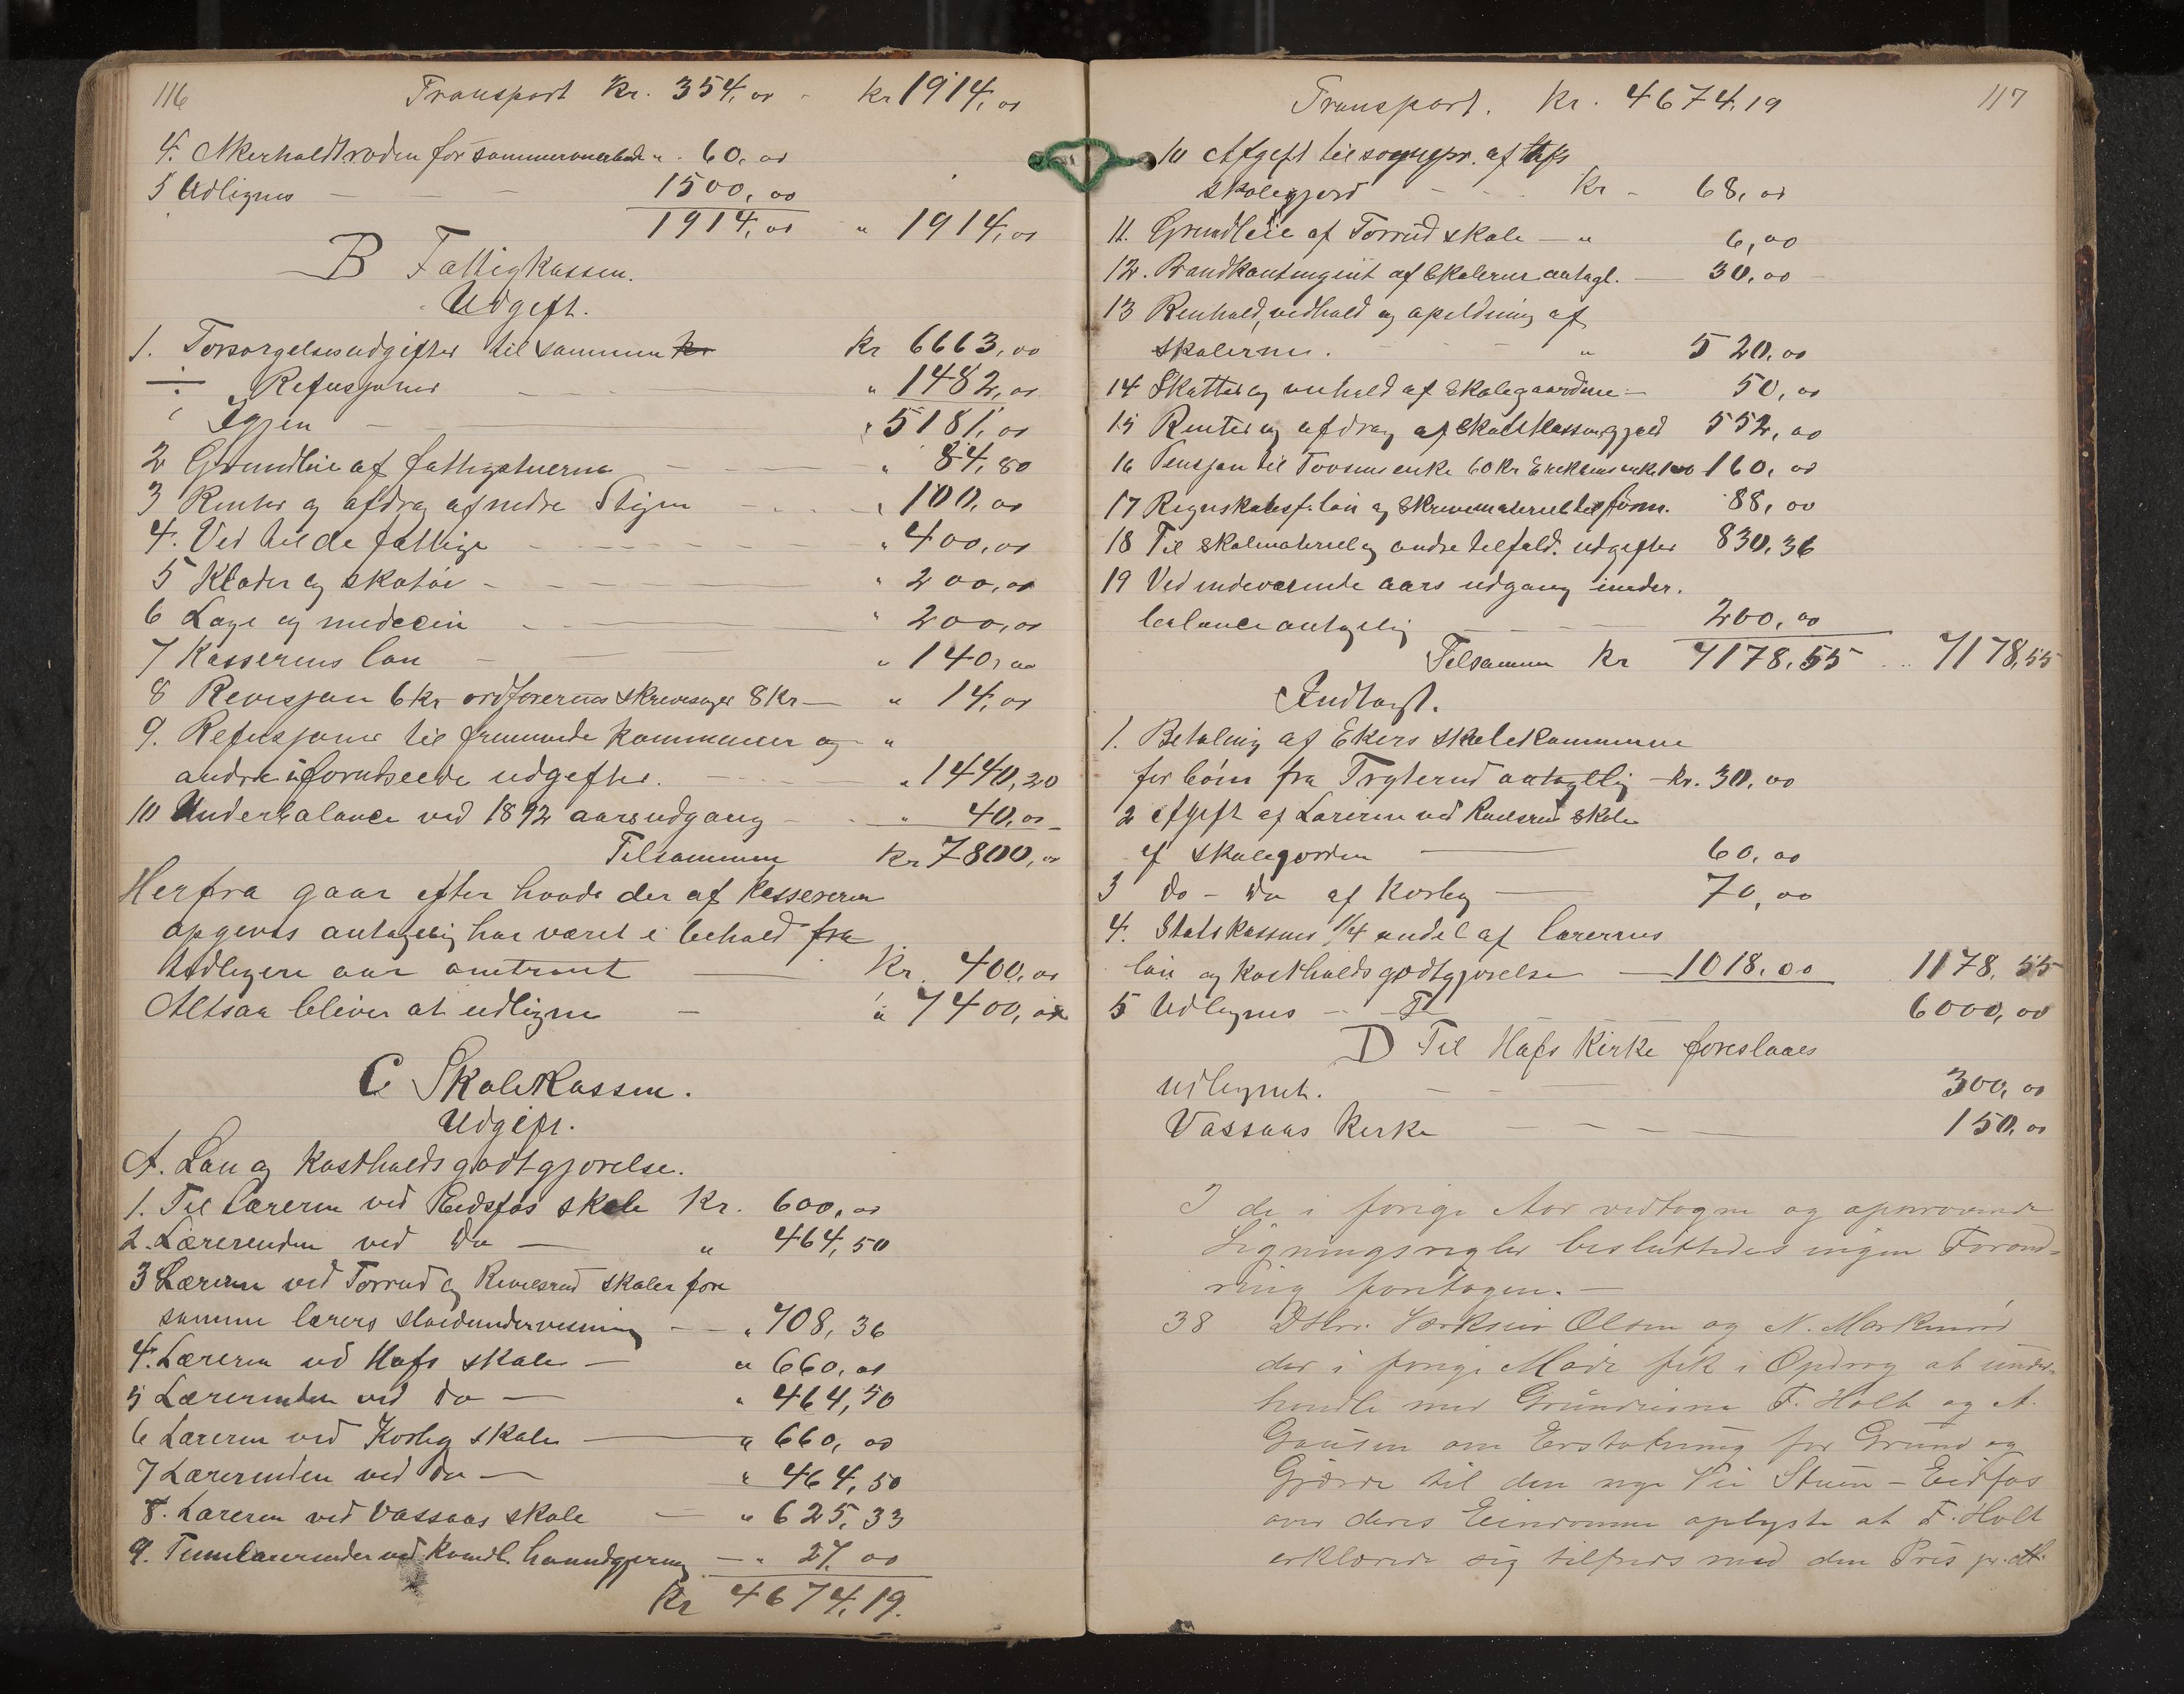 116
Transport Kr. 354,00 - Kr 1914,00
4. for " 60,00
5 Udlignes — — 1500,00
1914,00 " 1914,00
B Fattigkassen.
Udgift.
1. Forsørgelsesudgifter til sammen Kr 6663,00
÷ Refusjoner " 1482,00
Igjen — " 5181,00
2 Grundleie af fattigstuerne — " 84,80
3 Renter og afdrag af nedre Stigen " 100,00
4. Ved til de fattige " 400,00
5 Klæder og skotøi " 200,00
6 Læge og medecin " 200,00
7 Kassererens løn " 140,00
8 Revisjon 6 kr ordførerens skrivesager 8 Kr — " 14,00
9. Refusjoner til fremmede kommuner og "
andre uforudseede udgifter. " 1440,20
10 Underbalance ved 1892 aars udgang " 40,00
Tilsammen Kr 7800,00
Herfra gaar efter hvad der af kassereren
opgives antagelig har været i behold fra
tidligere aar omtrent — Kr. 400,00
Altsaa bliver at udligne — " 7400,00
C Skolekassen.
Udgift.
A. Løn og kostholdsgodtgjørelse.
1. Til læreren ved Eidsfos skole Kr. 600,00
2. Lærerinden ved Do — " 464,50
3 Læreren ved Torrud og Revelsrud skoler
samme lærers sløidundervisning — " 708,36
4. Læreren ved Hofs skole — " 660,00
5 Lærerinden ved do — " 464,50
6 Læreren ved Korbøg skole — " 660,00
7 Lærerinden ved do — " 464,50
8. Læreren ved Vassaas skole — " 625,33
9. ved kvindl. haandgjerning — " 27,00
Kr 4674,19.
117
Transport. Kr. 4674,19
10 Afgift til sognepr. af Hofs
skolegjord - - Kr - 68,00
11. Grundleie af Torrud skole — " 6,00
12. Brandkontingent af skolerne antagl. — 30,00
13 Renhold, vedhold og opeldning af
skolerne. " 520,00
14 Skatter og vedhold af skolegaardene — 50,00
15 Renter og afdrag af skolekassens gjæld 552,00
16 Pensjon til enke 60 Kr enke 100 160,00
17 Regnskabsf. løn og skrivemateriel til form. 88,00
18 Til skolemateriel og andre tilfæld. udgifter 830,36
19 Ved indeværende aars udgang under-
balance antagelig 200,00
Tilsammen Kr 7178,55 7178,55
Indtægt.
1. Betaling af Ekers skolekommune
for børn fra Tryterud antagelig Kr. 30,00
2 Afgift af Læreren ved Revelsrud skole
af skolegorden — 60,00
3 do - do af Korbøg — 70,00
4. Statskassens 1/4 andel af lærernes
løn og kostholdsgodtgjørelse — 1018.00 1178,55
5 Udlignes — 6000,00
D Til Hofs Kirke foreslaaes
udlignet. — 300,00
Vassaas Kirke — 150,00
I de i forige Aar vedtagne og approverede
Ligningsregler besluttedes ingen Forand-
ring foretagen. —
38 Dhrr. Olsen og N.
der i forige Møde fik i Opdrag at under-
handle med Grundeierne F. Holt og A.
om Erstatning for Grund og
Gjærde til den nye Vei Stuen - Eidfos
over deres Eiendomme oplyste at F. Holt
erklærede sig tilfreds med den Pris pr.